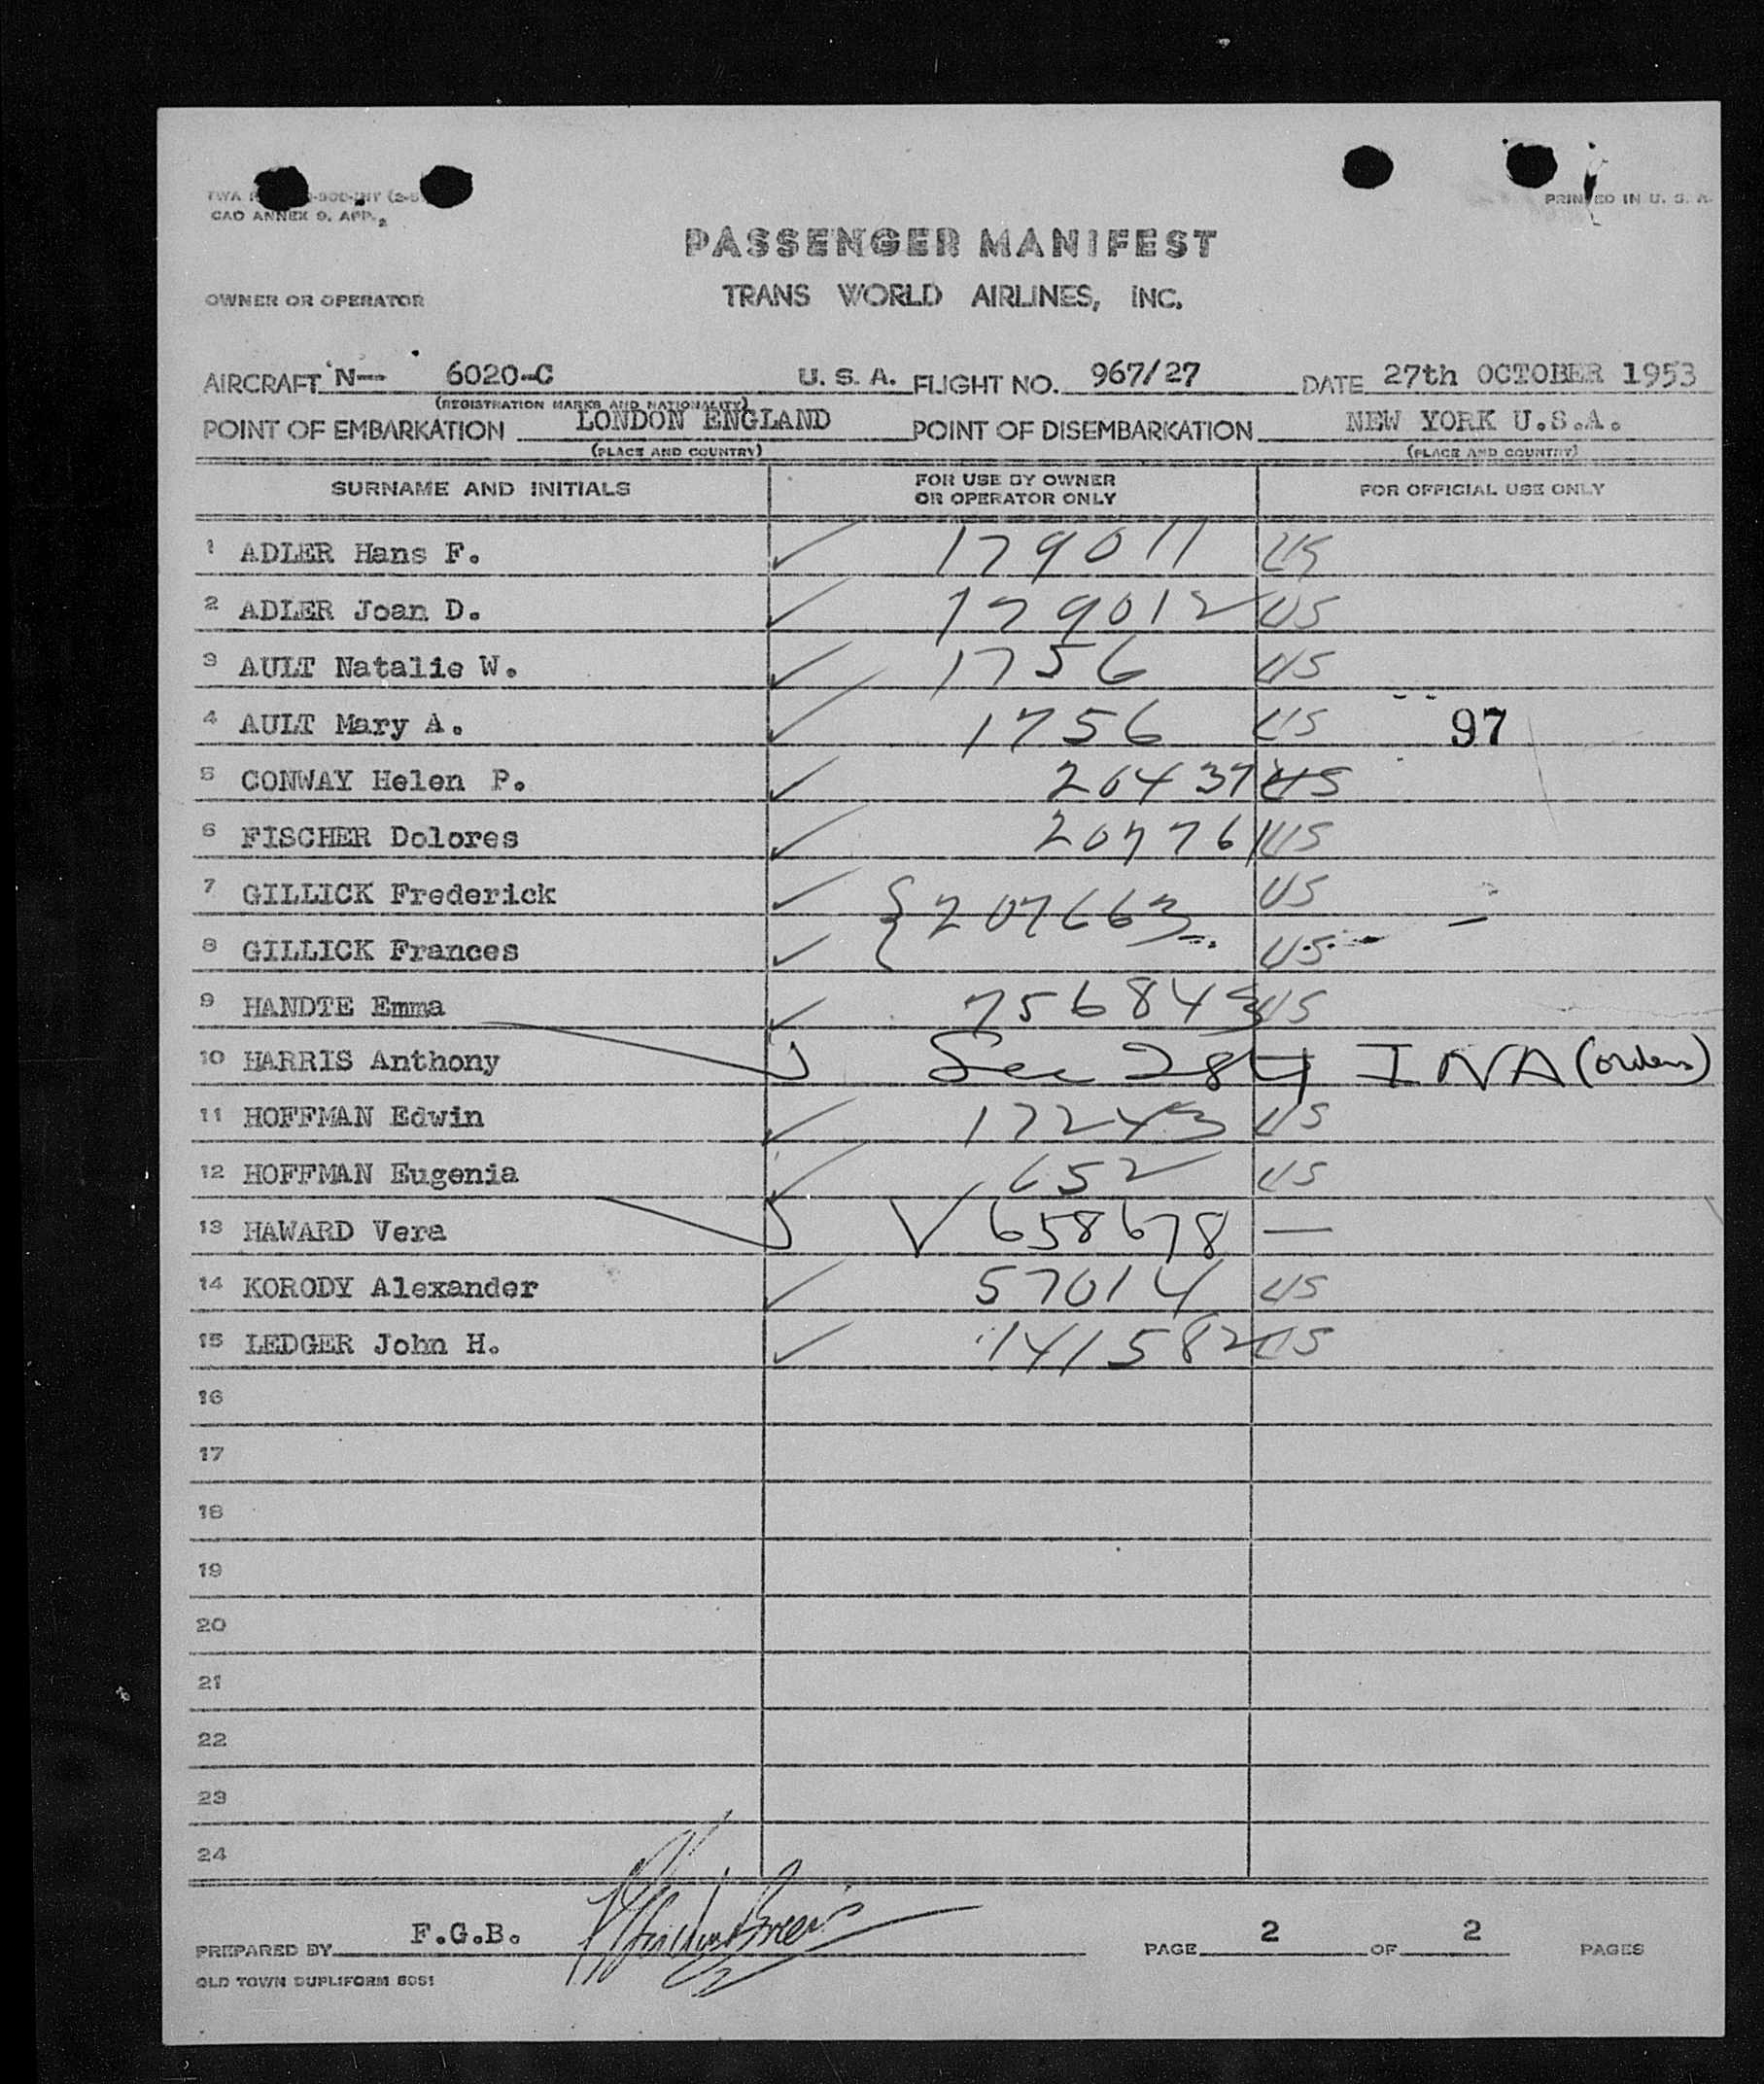 CAO ANNEX 9, APP. 2
PRINTED IN U. S. A.
PASSENGER MANIFEST
OWNER OR OPERATOR TRANS WORLD AIRLINES, INC.
AIRCRAFT N— 6020-C U. S. A. FLIGHT NO. 967/27 DATE 27th OCTOBER 1953
(REGISTRATION MARKS AND NATIONALITY)
POINT OF EMBARKATION LONDON ENGLAND POINT OF DISEMBARKATION NEW YORK U.S.A.
(PLACE AND COUNTRY) (PLACE AND COUNTRY)
SURNAME AND INITIALS FOR USE BY OWNER OR OPERATOR ONLY FOR OFFICIAL USE ONLY
1 ADLER Hans F. ✓ 179011 US
2 ADLER Joan D. ✓ 179012 US
3 AULT Natalie W. ✓ 1756 US
4 AULT Mary A. ✓ 1756 US 97
5 CONWAY Helen P. ✓ 26437 US
6 FISCHER Dolores ✓ 207761 US
7 GILLICK Frederick ✓ { 207663 US
8 GILLICK Frances ✓ US
9 HANDTE Emma ✓ 756843 US
10 HARRIS Anthony See 284 INA (orders)
11 HOFFMAN Edwin ✓ 17243 US
12 HOFFMAN Eugenia ✓ 652 US
13 HAWARD Vera ✓ 658678 —
14 KORODY Alexander ✓ 57014 US
15 LEDGER John H. ✓ 141582 US
16
17
18
19
20
21
22
23
24
PREPARED BY F.G.B. PAGE 2 OF 2 PAGES
OLD TOWN DUPLIFORM 6051